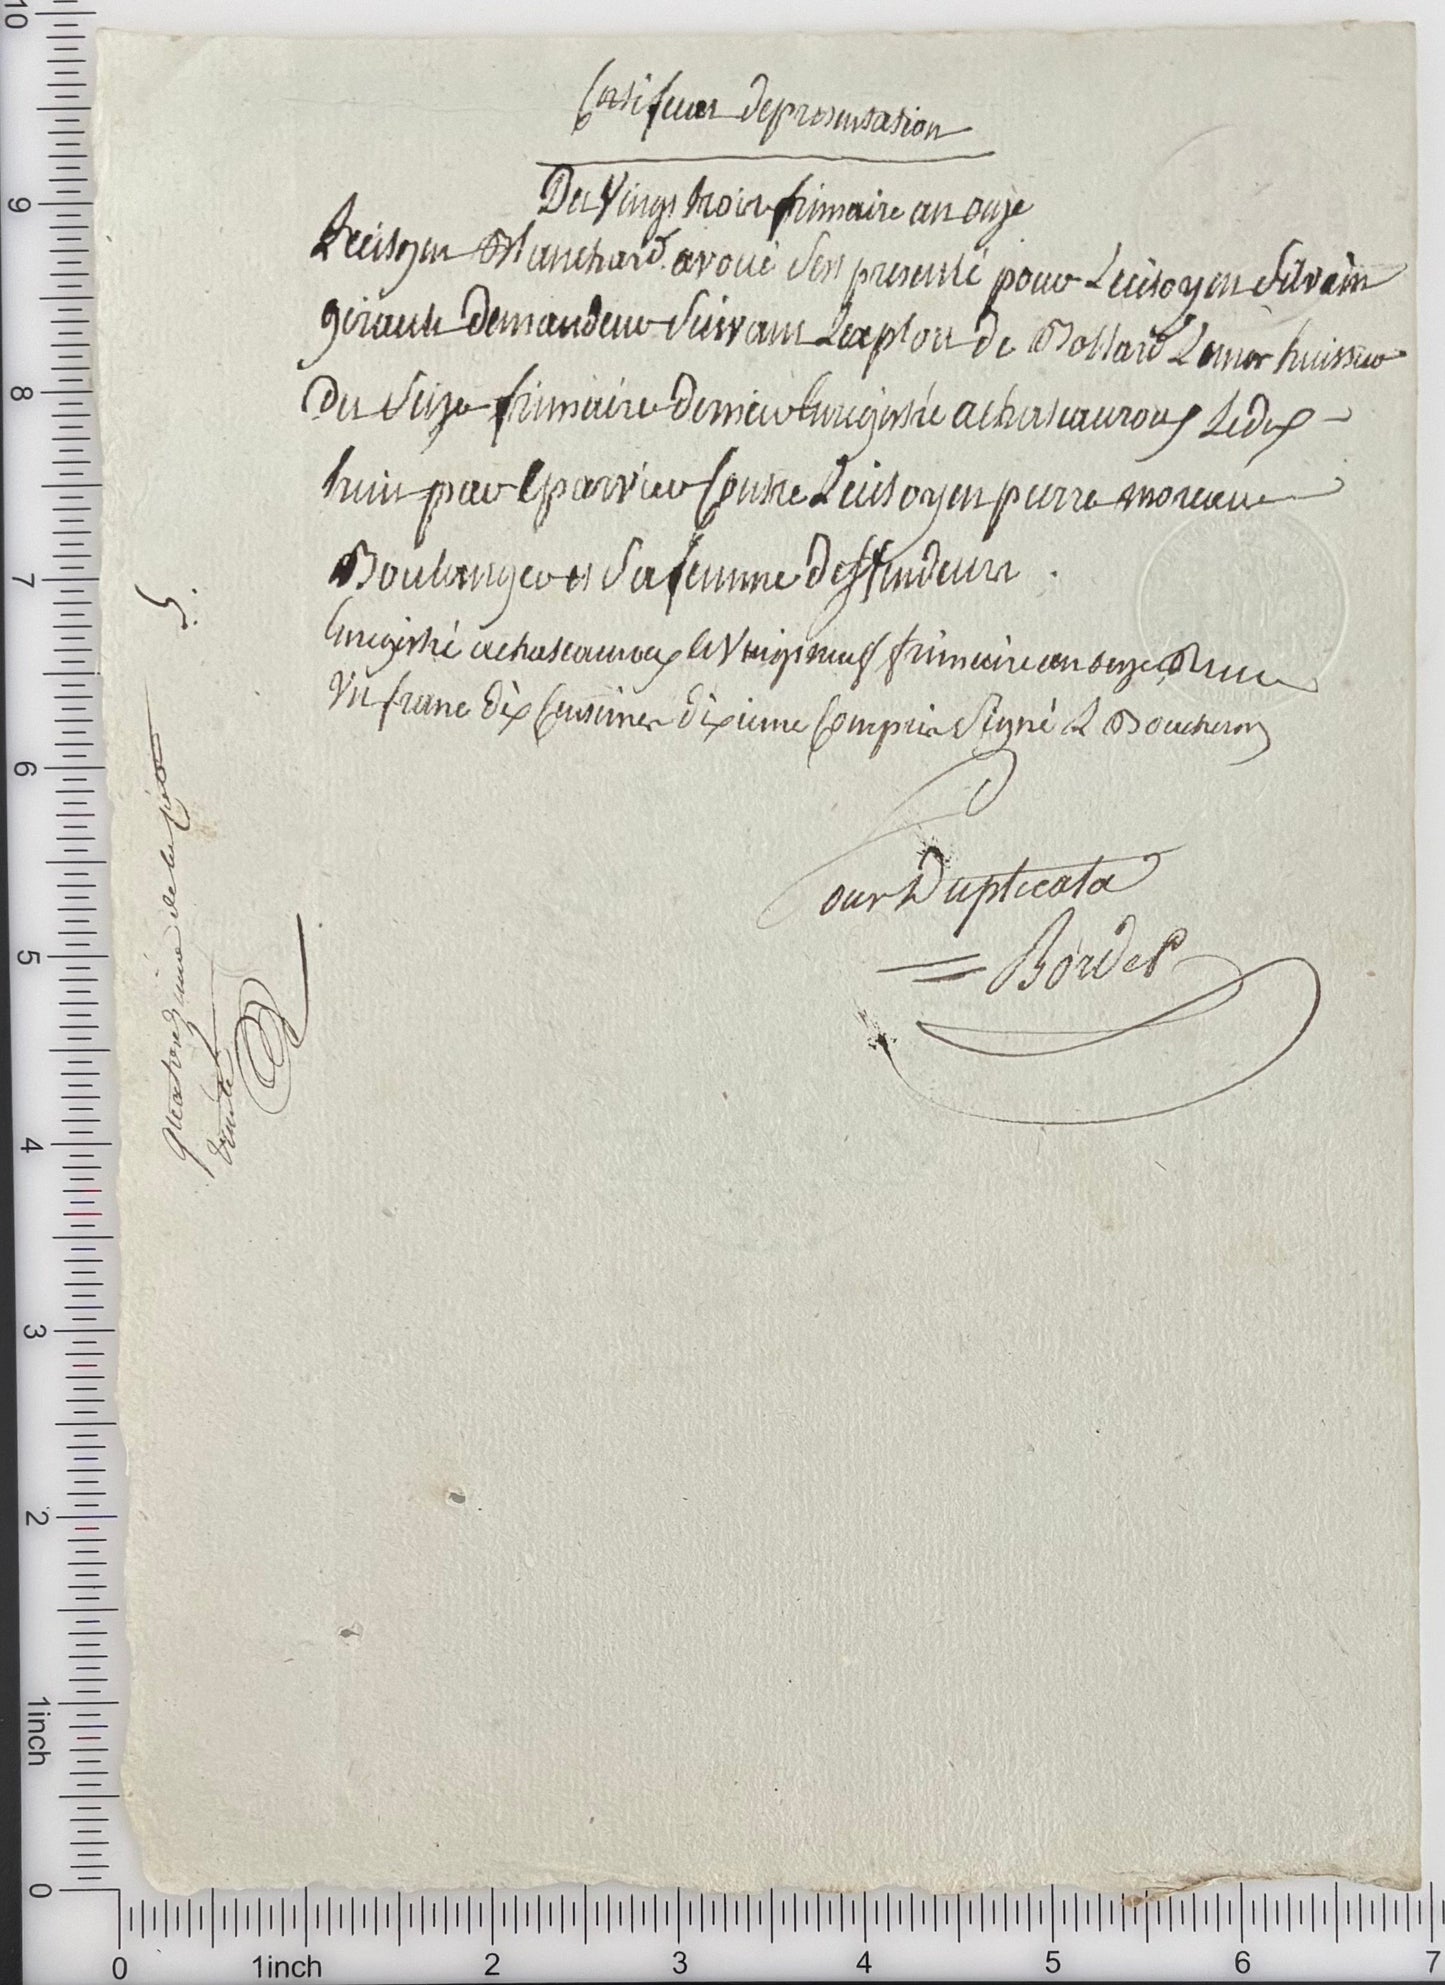 Certificat de presentation
Du Vingt trois frimaire an onze
Le citoyen Blanchard avoué s'est presenté pour Le citoyen Silvain
girault demandeur Suivant L'exploit de Bottard L'ainé huissier
Du Seize frimaire dernier Enregistré a chateauroux Le dix
huit par Eparvier Contre Le citoyen pierre moreau
Boulanger et Sa femme deffendeurs .
Enregistré a chateauroux le Vingt neuf frimaire an onze Reçu
Un franc dix Centimes dixieme Compris Signé L Boucheron
Pour Duplicata
= Bordet
5.
quatorzieme de la piece
0
1inch
2
3
4
5
6
7
8
9
10
0
1inch
2
3
4
5
6
7